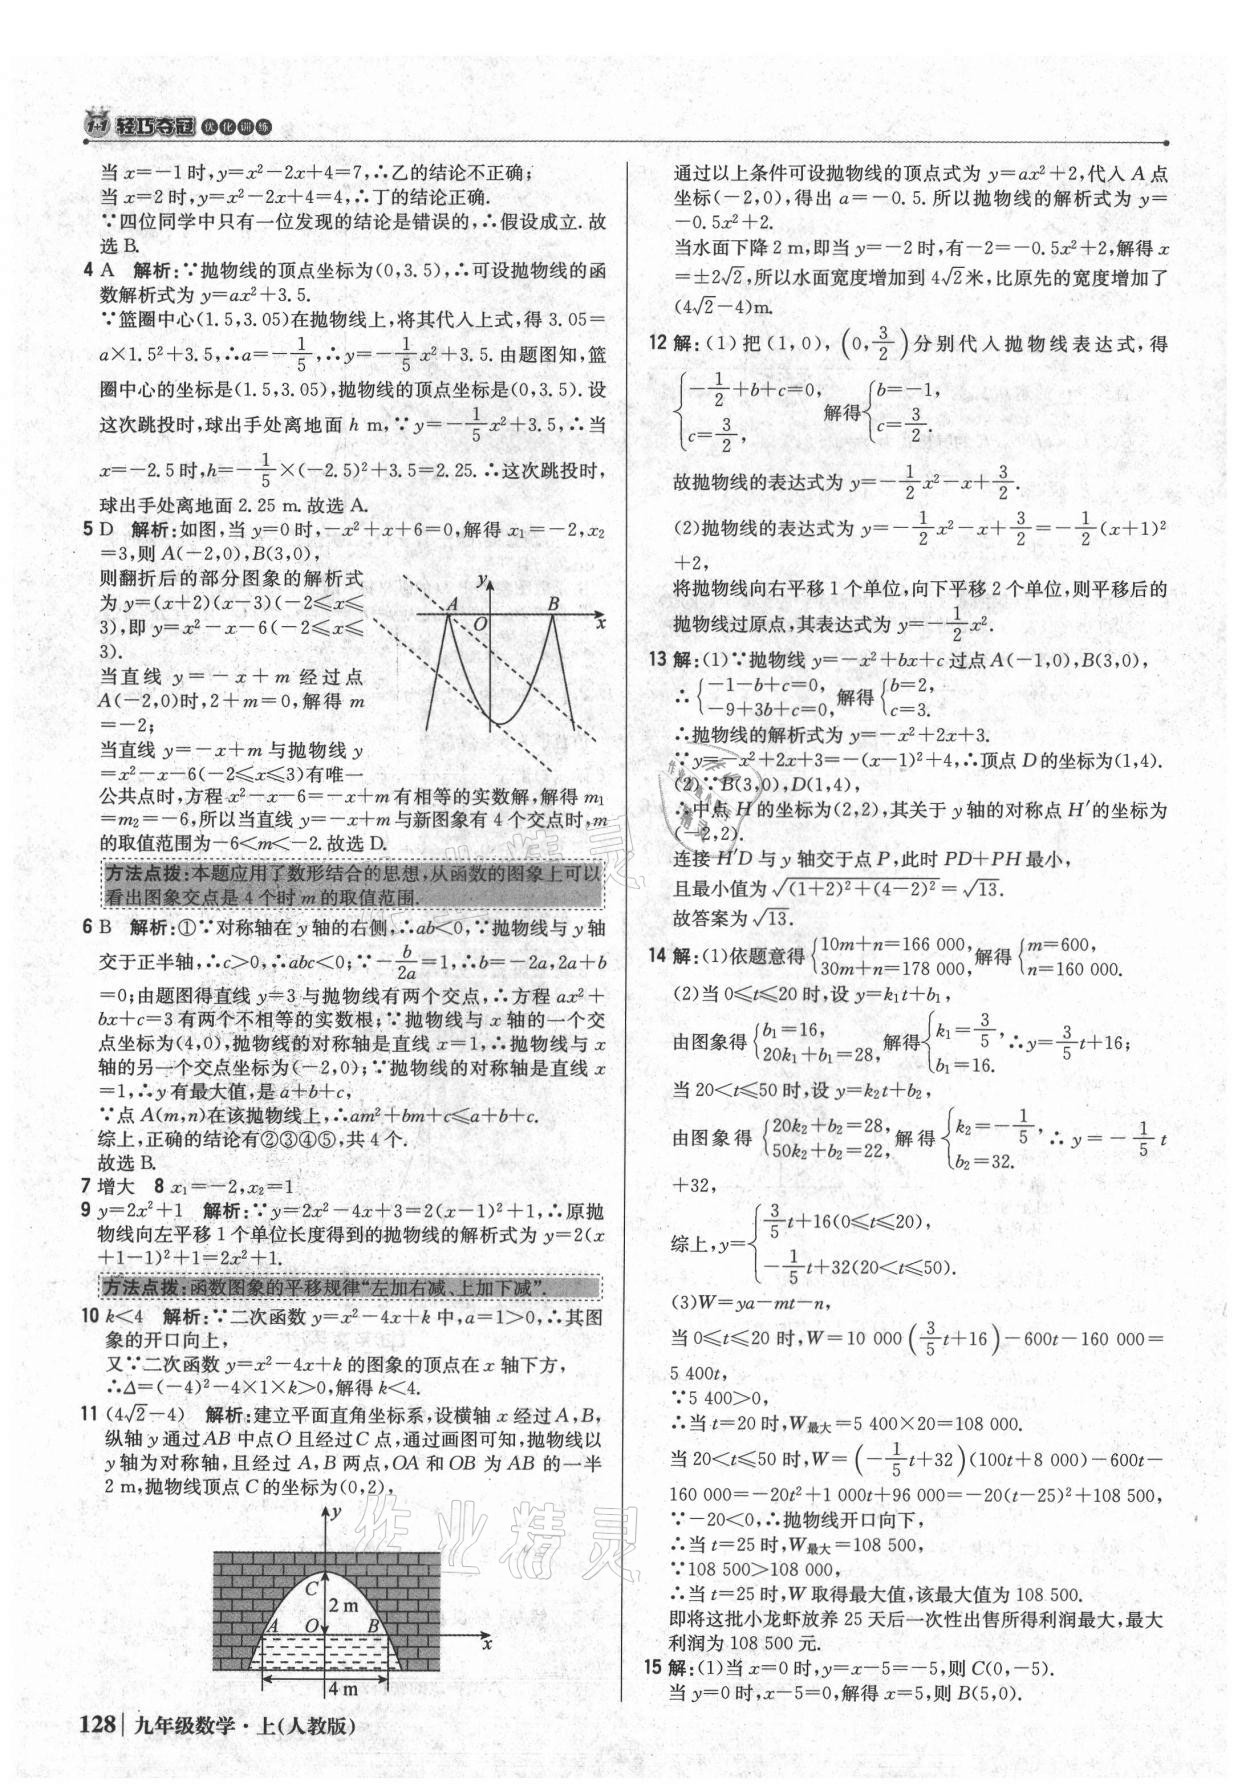 1+1 轻巧夺冠 优化训练
当 x=-1 时,y=x²-2x+4=7,∴乙的结论不正确;
当 x=2 时,y=x²-2x+4=4,∴丁的结论正确.
∵四位同学中只有一位发现的结论是错误的,∴假设成立. 故
选 B.
4 A 解析:∵抛物线的顶点坐标为(0,3.5),∴可设抛物线的函
数解析式为 y=ax²+3.5.
∵篮圈中心(1.5,3.05)在抛物线上,将其代入上式,得 3.05=
a×1.5²+3.5,∴a=-1/5,∴y=-1/5x²+3.5. 由题图知,篮
圈中心的坐标是(1.5,3.05),抛物线的顶点坐标是(0,3.5). 设
这次跳投时,球出手处离地面 h m,∵y=-1/5x²+3.5,∴当
x=-2.5 时,h=-1/5×(-2.5)²+3.5=2.25. ∴这次跳投时,
球出手处离地面 2.25 m. 故选 A.
5 D 解析:如图,当 y=0 时,-x²+x+6=0,解得 x₁=-2,x₂
=3,则 A(-2,0),B(3,0),
则翻折后的部分图象的解析式
为 y=(x+2)(x-3)(-2≤x≤
3),即 y=x²-x-6(-2≤x≤
3).
当直线 y=-x+m 经过点
A(-2,0)时,2+m=0,解得 m
=-2;
当直线 y=-x+m 与抛物线 y
=x²-x-6(-2≤x≤3)有唯一
y
A
B
O
x
公共点时,方程 x²-x-6=-x+m 有相等的实数解,解得 m₁
=m₂=-6,所以当直线 y=-x+m 与新图象有 4 个交点时,m
的取值范围为-6<m<-2. 故选 D.
方法点拨:本题应用了数形结合的思想,从函数的图象上可以
看出图象交点是 4 个时 m 的取值范围.
6 B 解析:①∵对称轴在 y 轴的右侧,∴ab<0,∵抛物线与 y 轴
交于正半轴,∴c>0,∴abc<0;∵-b/2a=1,∴b=-2a,2a+b
=0;由题图得直线 y=3 与抛物线有两个交点,∴方程 ax²+
bx+c=3 有两个不相等的实数根;∵抛物线与 x 轴的一个交
点坐标为(4,0),抛物线的对称轴是直线 x=1,∴抛物线与 x
轴的另一个交点坐标为(-2,0);∵抛物线的对称轴是直线 x
=1,∴y 有最大值,是 a+b+c,
∵点 A(m,n)在该抛物线上,∴am²+bm+c≤a+b+c.
综上,正确的结论有②③④⑤,共 4 个.
故选 B.
7 增大 8 x₁=-2,x₂=1
9 y=2x²+1 解析:∵y=2x²-4x+3=2(x-1)²+1,∴原抛
物线向左平移 1 个单位长度得到的抛物线的解析式为 y=2(x
+1-1)²+1=2x²+1.
方法点拨:函数图象的平移规律“左加右减、上加下减”.
10 k<4 解析:∵二次函数 y=x²-4x+k 中,a=1>0,∴其图
象的开口向上,
又∵二次函数 y=x²-4x+k 的图象的顶点在 x 轴下方,
∴Δ=(-4)²-4×1×k>0,解得 k<4.
11 (4√2-4) 解析:建立平面直角坐标系,设横轴 x 经过 A,B,
纵轴 y 通过 AB 中点 O 且经过 C 点,通过画图可知,抛物线以
y 轴为对称轴,且经过 A,B 两点,OA 和 OB 为 AB 的一半
2 m,抛物线顶点 C 的坐标为(0,2),
y
C
2 m
A
O
B
x
4 m
128 九年级数学·上(人教版)
通过以上条件可设抛物线的顶点式为 y=ax²+2,代入 A 点
坐标(-2,0),得出 a=-0.5. 所以抛物线的解析式为 y=
-0.5x²+2.
当水面下降 2 m,即当 y=-2 时,有-2=-0.5x²+2,解得 x
=±2√2,所以水面宽度增加到 4√2米,比原先的宽度增加了
(4√2-4)m.
12 解:(1)把(1,0),(0,3/2)分别代入抛物线表达式,得
{-1/2+b+c=0, c=3/2, 解得{b=-1, c=3/2.
故抛物线的表达式为 y=-1/2x²-x+3/2.
(2)抛物线的表达式为 y=-1/2x²-x+3/2=-1/2(x+1)²
+2,
将抛物线向右平移 1 个单位,向下平移 2 个单位,则平移后的
抛物线过原点,其表达式为 y=-1/2x².
13 解:(1)∵抛物线 y=-x²+bx+c 过点 A(-1,0),B(3,0),
∴{-1-b+c=0, -9+3b+c=0, 解得{b=2, c=3.
∴抛物线的解析式为 y=-x²+2x+3.
∵y=-x²+2x+3=-(x-1)²+4,∴顶点 D 的坐标为(1,4).
(2)∵B(3,0),D(1,4),
∴中点 H 的坐标为(2,2),其关于 y 轴的对称点 H′的坐标为
(-2,2).
连接 H′D 与 y 轴交于点 P,此时 PD+PH 最小,
且最小值为 √((1+2)²+(4-2)²)=√13.
故答案为 √13.
14 解:(1)依题意得{10m+n=166 000, 30m+n=178 000, 解得{m=600, n=160 000.
(2)当 0≤t≤20 时,设 y=k₁t+b₁,
由图象得{b₁=16, 20k₁+b₁=28, 解得{k₁=3/5, b₁=16. ∴y=3/5t+16;
当 20<t≤50 时,设 y=k₂t+b₂,
由图象得{20k₂+b₂=28, 50k₂+b₂=22, 解得{k₂=-1/5, b₂=32. ∴y=-1/5t
+32,
综上,y={3/5t+16(0≤t≤20), -1/5t+32(20<t≤50).
(3)W=ya-mt-n,
当 0≤t≤20 时,W=10 000(3/5t+16)-600t-160 000=
5 400t,
∵5 400>0,
∴当 t=20 时,W最大=5 400×20=108 000.
当 20<t≤50 时,W=(-1/5t+32)(100t+8 000)-600t-
160 000=-20t²+1 000t+96 000=-20(t-25)²+108 500,
∵-20<0,∴抛物线开口向下,
∴当 t=25 时,W最大=108 500.
∵108 500>108 000,
∴当 t=25 时,W 取得最大值,该最大值为 108 500.
即将这批小龙虾放养 25 天后一次性出售所得利润最大,最大
利润为 108 500 元.
15 解:(1)当 x=0 时,y=x-5=-5,则 C(0,-5).
当 y=0 时,x-5=0,解得 x=5,则 B(5,0).
作业精灵
作业精灵